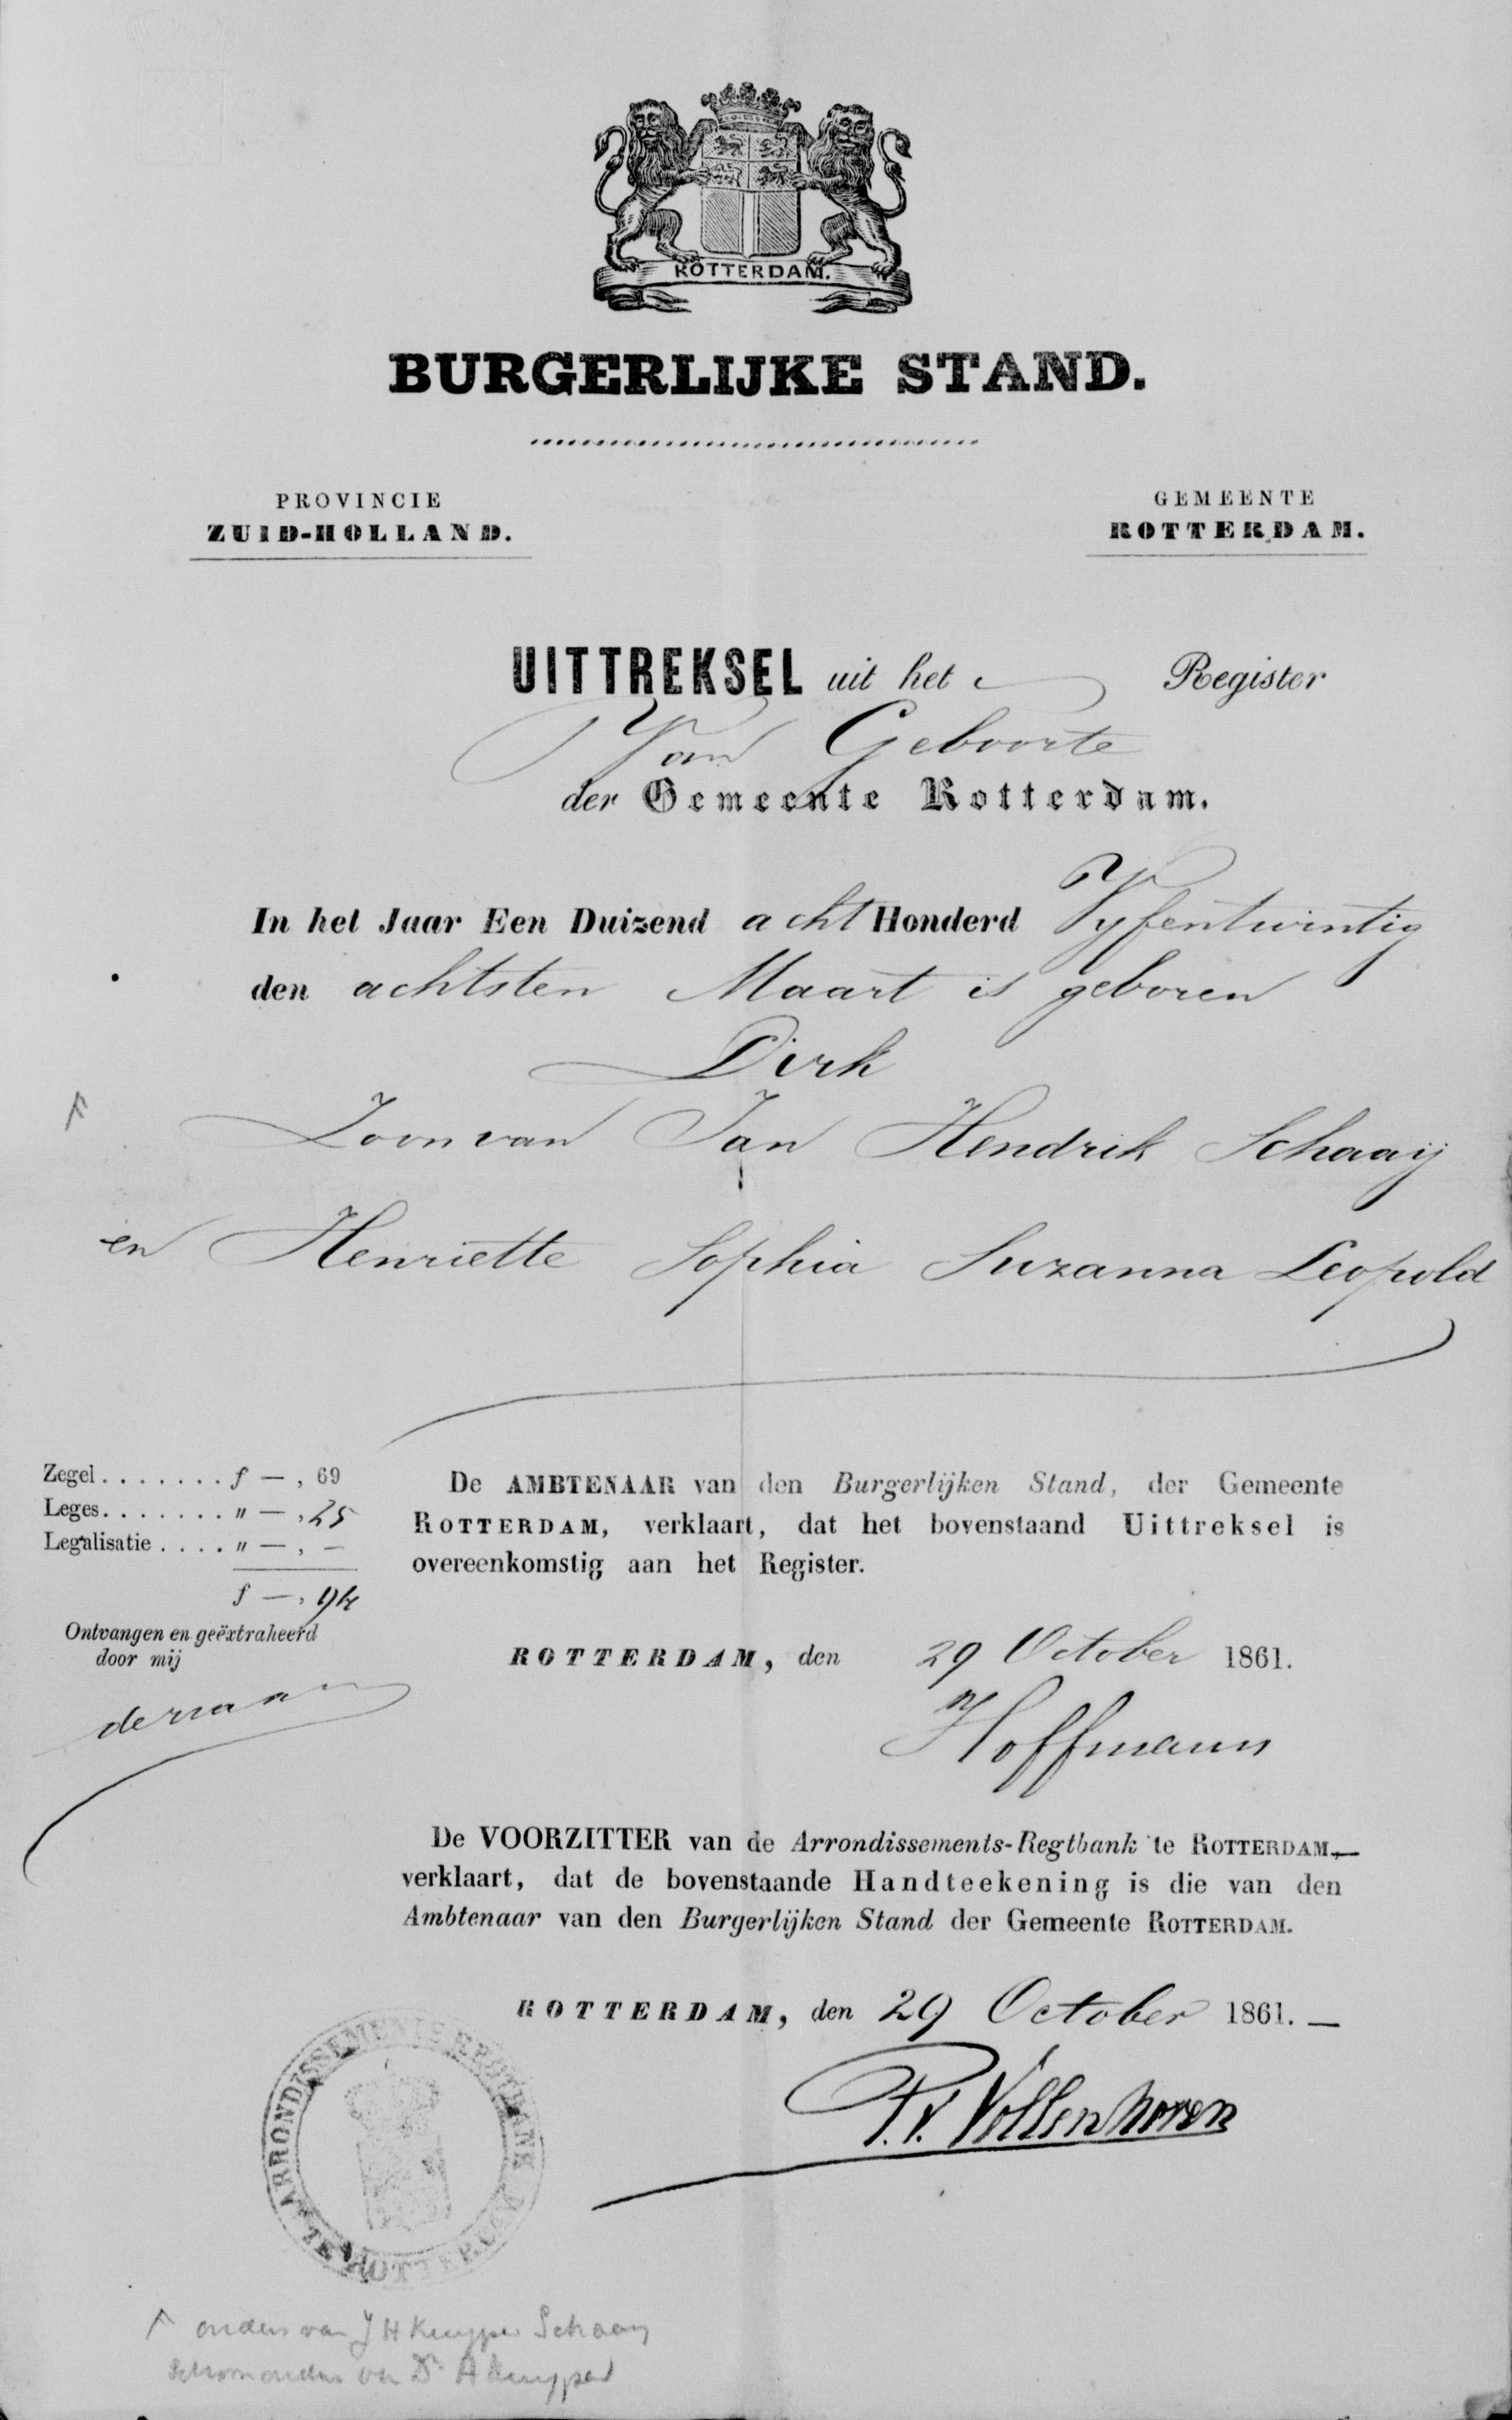 ROTTERDAM.
BURGERLIJKE STAND.
PROVINCIE
ZUID-HOLLAND.
GEMEENTE
ROTTERDAM.
UITTREKSEL uit het Register
Van Geboorte
der Gemeente Rotterdam.
In het Jaar Een Duizend acht Honderd Vyfentwintig
den achtsten Maart is geboren
Dirk
Zoon van Jan Hendrik Schaaij
en Henriette Sophia Suzanna Leopold
Zegel....... f —, 69
Leges....... " —, 25
Legalisatie.... " —, —
f —, 94
Ontvangen en geëxtraheerd
door mij
De AMBTENAAR van den Burgerlijken Stand, der Gemeente
ROTTERDAM, verklaart, dat het bovenstaand Uittreksel is
overeenkomstig aan het Register.
ROTTERDAM, den 29 October 1861.
Hoffmann
De VOORZITTER van de Arrondissements-Regtbank te ROTTERDAM—
verklaart, dat de bovenstaande Handteekening is die van den
Ambtenaar van den Burgerlijken Stand der Gemeente ROTTERDAM.
ROTTERDAM, den 29 October 1861. —
P.V. Vollenhoven
ARRONDISSEMENTS REGTBANK TE ROTTERDAM
ouders van J H Kuyper Schaay
Schoonouders van Dr A Kuyper